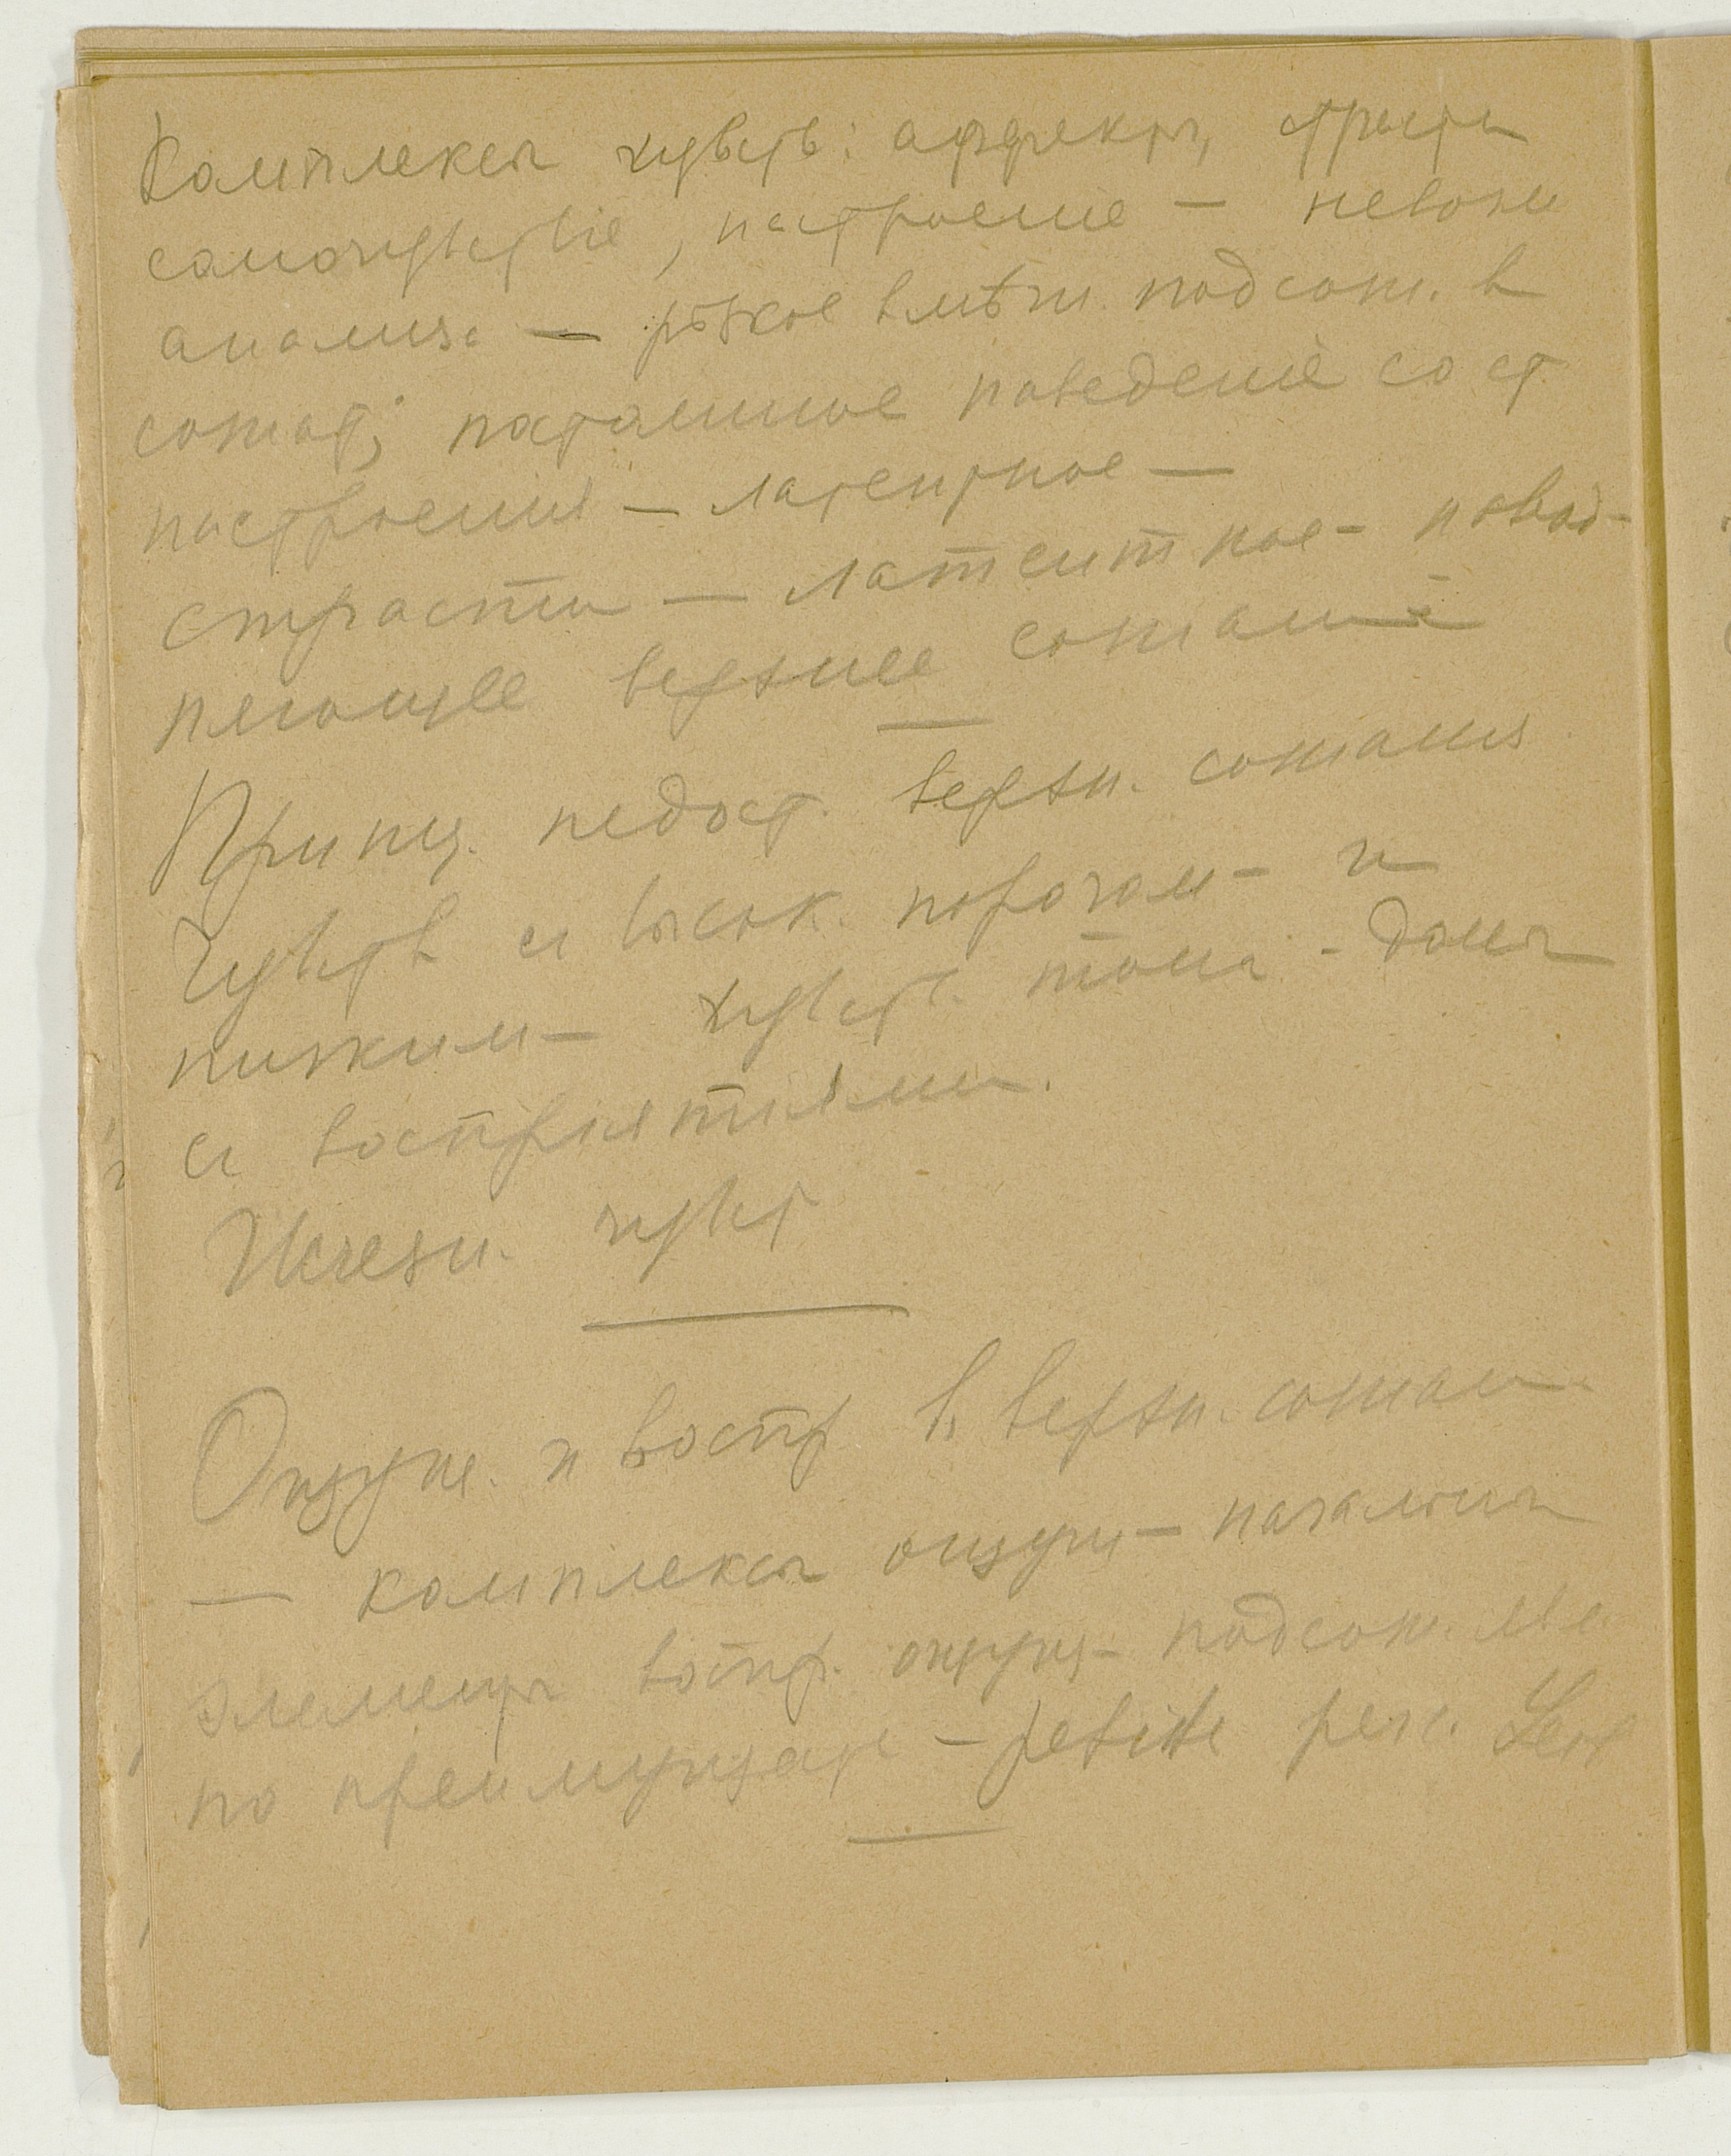 Комплексы чувств: аффекты, страсти
самочувствіе, настроеніе —
анализа — рѣзкое вмѣш. подсозн. в
сознат; постоянное поведеніе со ст
настроенія — латентное —
страсти — латентное — навод-
няющее верхнее сознаніе
Принц. недост. верхн. сознания
Чувств съ высок. порогам — и
низким — чувств. тона - даны
съ воспріятіями.
Исчезн. чувст
Ощущ. и воспр в верхн. сознан.
— комплексы ощущ — начальны
элементы воспр. ощущ — подсозн.
по преимуществ — petite perc. Leib